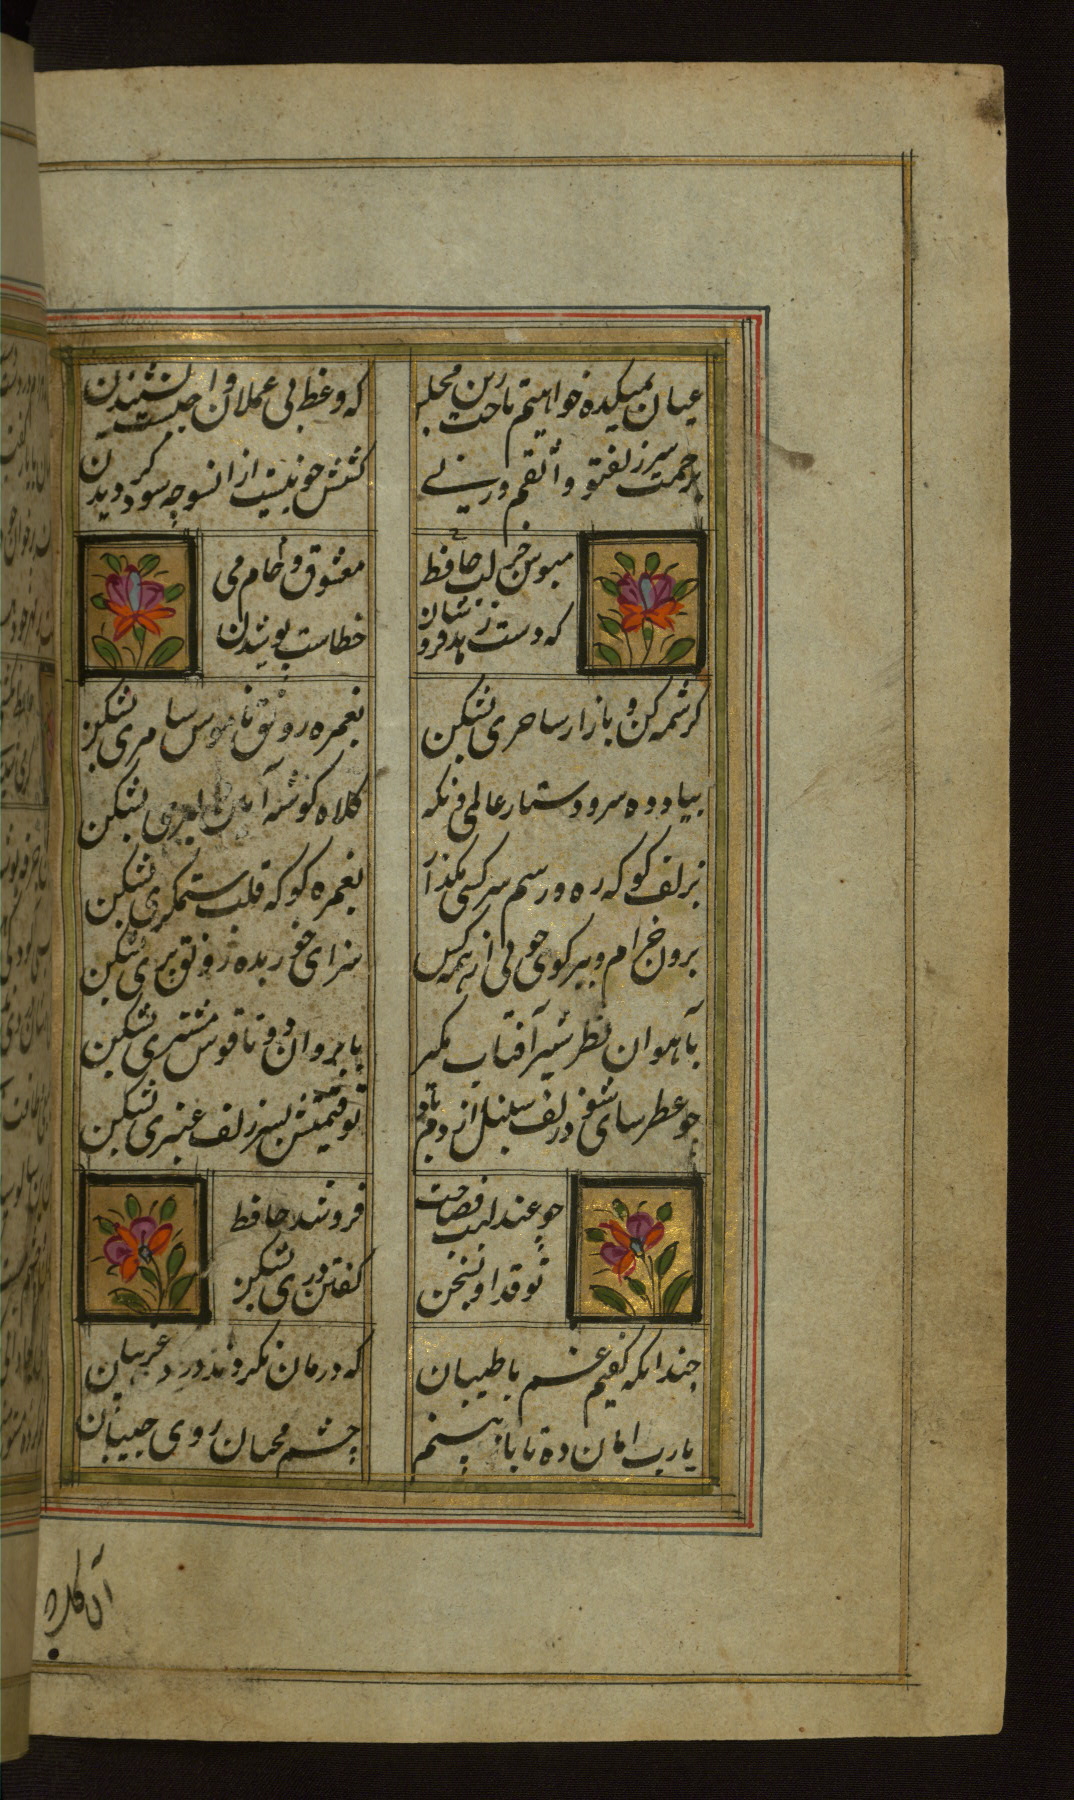 عنان بمیکده خواهیم تاخت زین مجلس
که وعظ بی عملان واجبست نشنیدن
برحمت سر زلف تو واثقم ورنی
کشش چو نیست از انسو چه سود کوشیدن
مبوس جز لب حافظ معشوق و جام می
که دست زهد فروشان خطاست بوسیدن
کرشمه کن و بازار ساحری بشکن
بغمزه رونق ناموس سامری بشکن
بباد ده سر و دستار عالمی ونکه
کلاه کوشه آیین دلبری بشکن
بزلف کو که ره و رسم سرکشی بکذار
بغمزه کو که قلب ستمکری بشکن
برون خرام و ببر کوی خوبی از همه کس
سزای حور بده رونق پری بشکن
بآهوان نظر شیر آفتاب بکیر
بابروان دوتا قوس مشتری بشکن
چو عطرسای شود زلف سنبل از دم باد
تو قیمتش بسر زلف عنبری بشکن
چو عندلیب فصاحت فروشد حافظ
تو قدر او بسخن کفتن دری بشکن
چندانکه کفتیم غم با طبیبان
که درمان نکردند درد غریبان
یارب امان ده تا باز بینم
چشم محبان روی حبیبان
آن کل